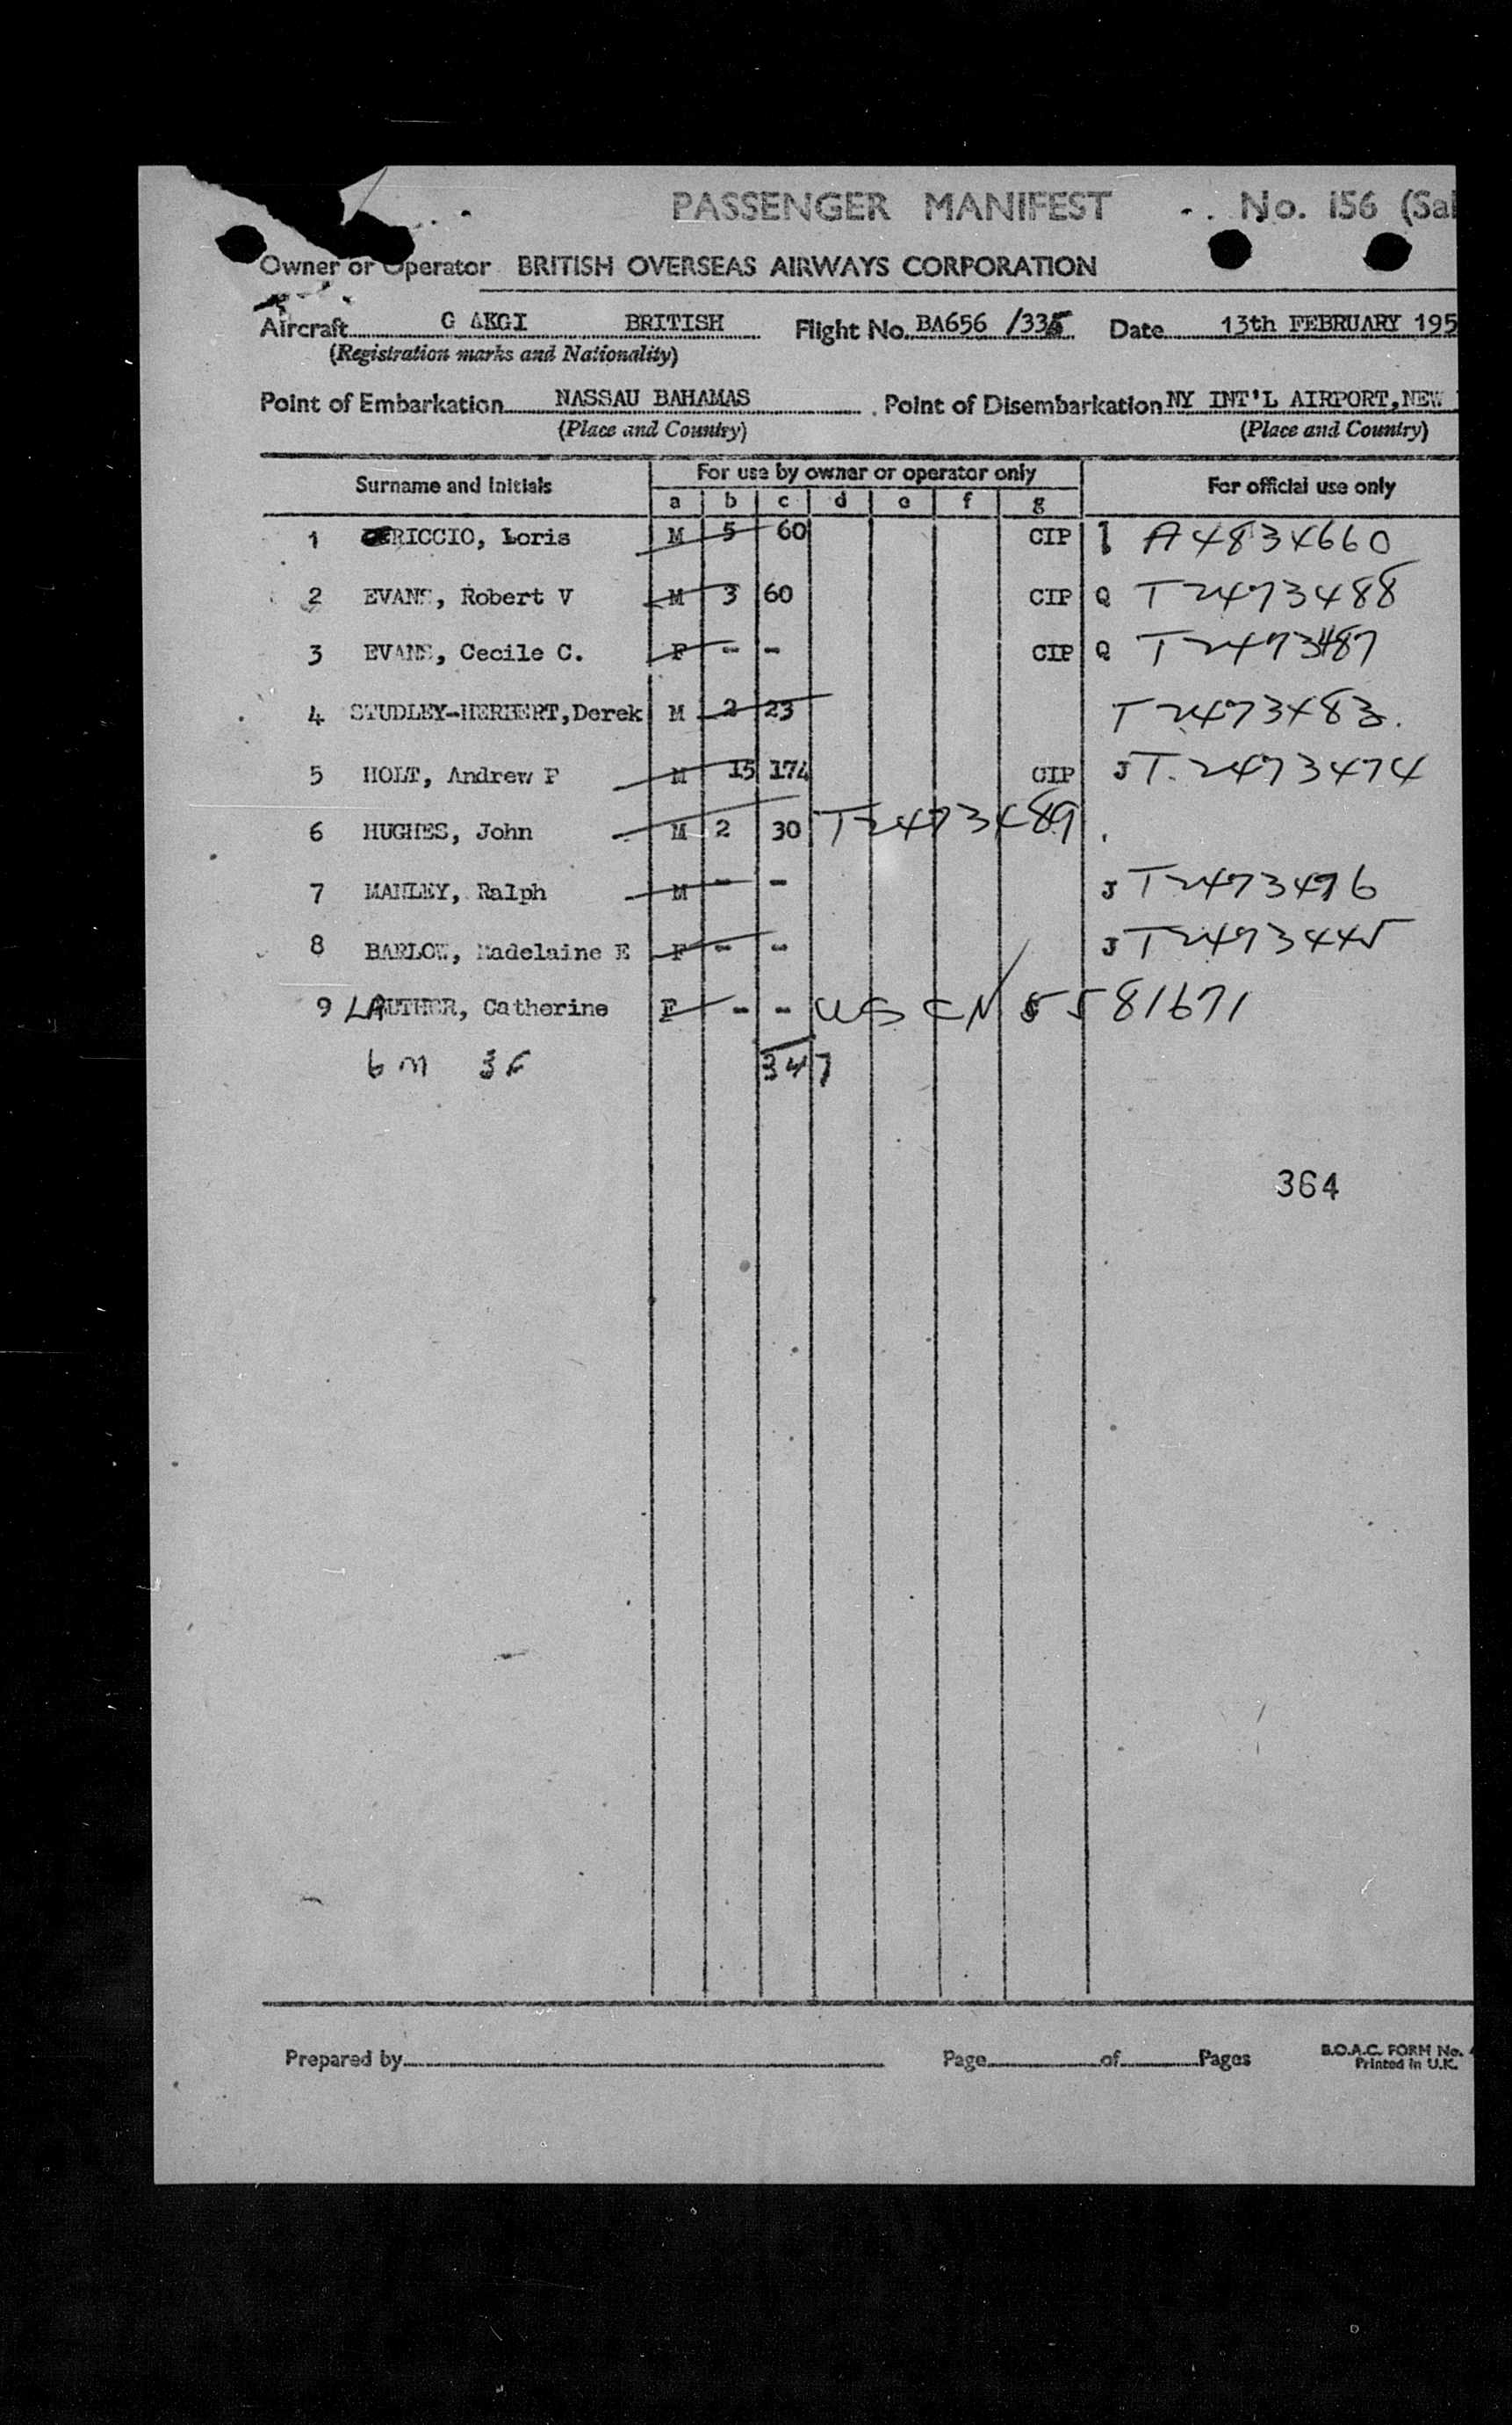 PASSENGER MANIFEST No. 156 (Sal
Owner or Operator BRITISH OVERSEAS AIRWAYS CORPORATION
Aircraft G AKGI BRITISH Flight No. BA656 /335 Date 13th FEBRUARY 195
(Registration marks and Nationality)
Point of Embarkation NASSAU BAHAMAS Point of Disembarkation NY INT'L AIRPORT, NEW
(Place and Country) (Place and Country)
Surname and Initials For use by owner or operator only For official use only
a b c d e f g
1 RICCIO, Loris M 5 60 CIP A4834660
2 EVANS, Robert V M 3 60 CIP Q T2473488
3 EVANS, Cecile C. F - - CIP Q T2473487
4 STUDLEY-HERBERT, Derek M 2 23 T2473483.
5 HOLT, Andrew P M 15 174 CIP J T.2473474
6 HUGHES, John M 2 30 T2473489
7 MANLEY, Ralph M - - J T2473476
8 BARLOW, Madelaine E F - - J T2473445
9 LAUTHER, Catherine F - - US CN 5581671
6 M 3 F 347
364
Prepared by Page of Pages B.O.A.C. FORM No.
Printed in U.K.